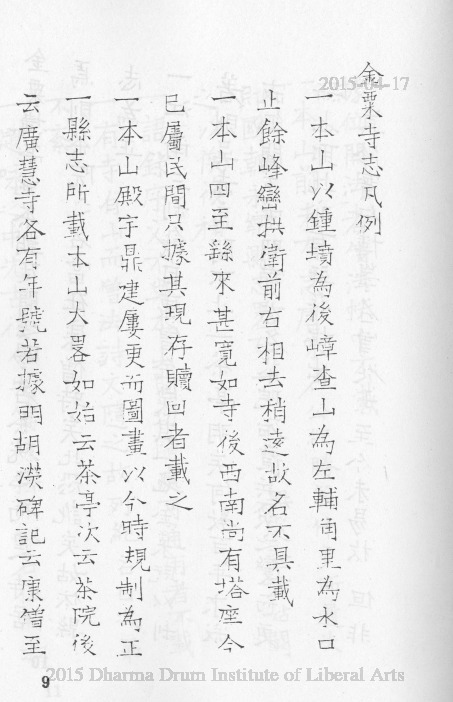 2015-04-17
金粟寺志凡例
一本山以鍾墳為後嶂查山為左輔甪里為水口
止餘峰巒拱衛前右相去稍遠故名不具載
一本山四至繇來甚寬如寺後西南尚有塔座今
已屬民間只據其現存贖回者載之
一本山殿宇鼎建屢更而圖畫以今時規制為正
一縣志所載本山大畧如始云茶亭次云茶院後
云廣慧寺各有年號若據明胡濙碑記云康僧至
9
2015 Dharma Drum Institute of Liberal Arts